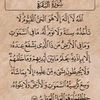 سُورَةُ الْبَقَرَةِ
اللَّهُ لَا إِلَٰهَ إِلَّا هُوَ الْحَيُّ الْقَيُّومُ لَا
تَأْخُذُهُ سِنَةٌ وَلَا نَوْمٌ لَّهُ مَا فِي السَّمَاوَاتِ
وَمَا فِي الْأَرْضِ مَن ذَا الَّذِي يَشْفَعُ عِندَهُ
إِلَّا بِإِذْنِهِ يَعْلَمُ مَا بَيْنَ أَيْدِيهِمْ وَمَا خَلْفَهُمْ
وَلَا يُحِيطُونَ بِشَيْءٍ مِّنْ عِلْمِهِ إِلَّا بِمَا شَاءَ
وَسِعَ كُرْسِيُّهُ السَّمَاوَاتِ وَالْأَرْضَ
وَلَا يَئُودُهُ حِفْظُهُمَا وَهُوَ الْعَلِيُّ الْعَظِيمُ